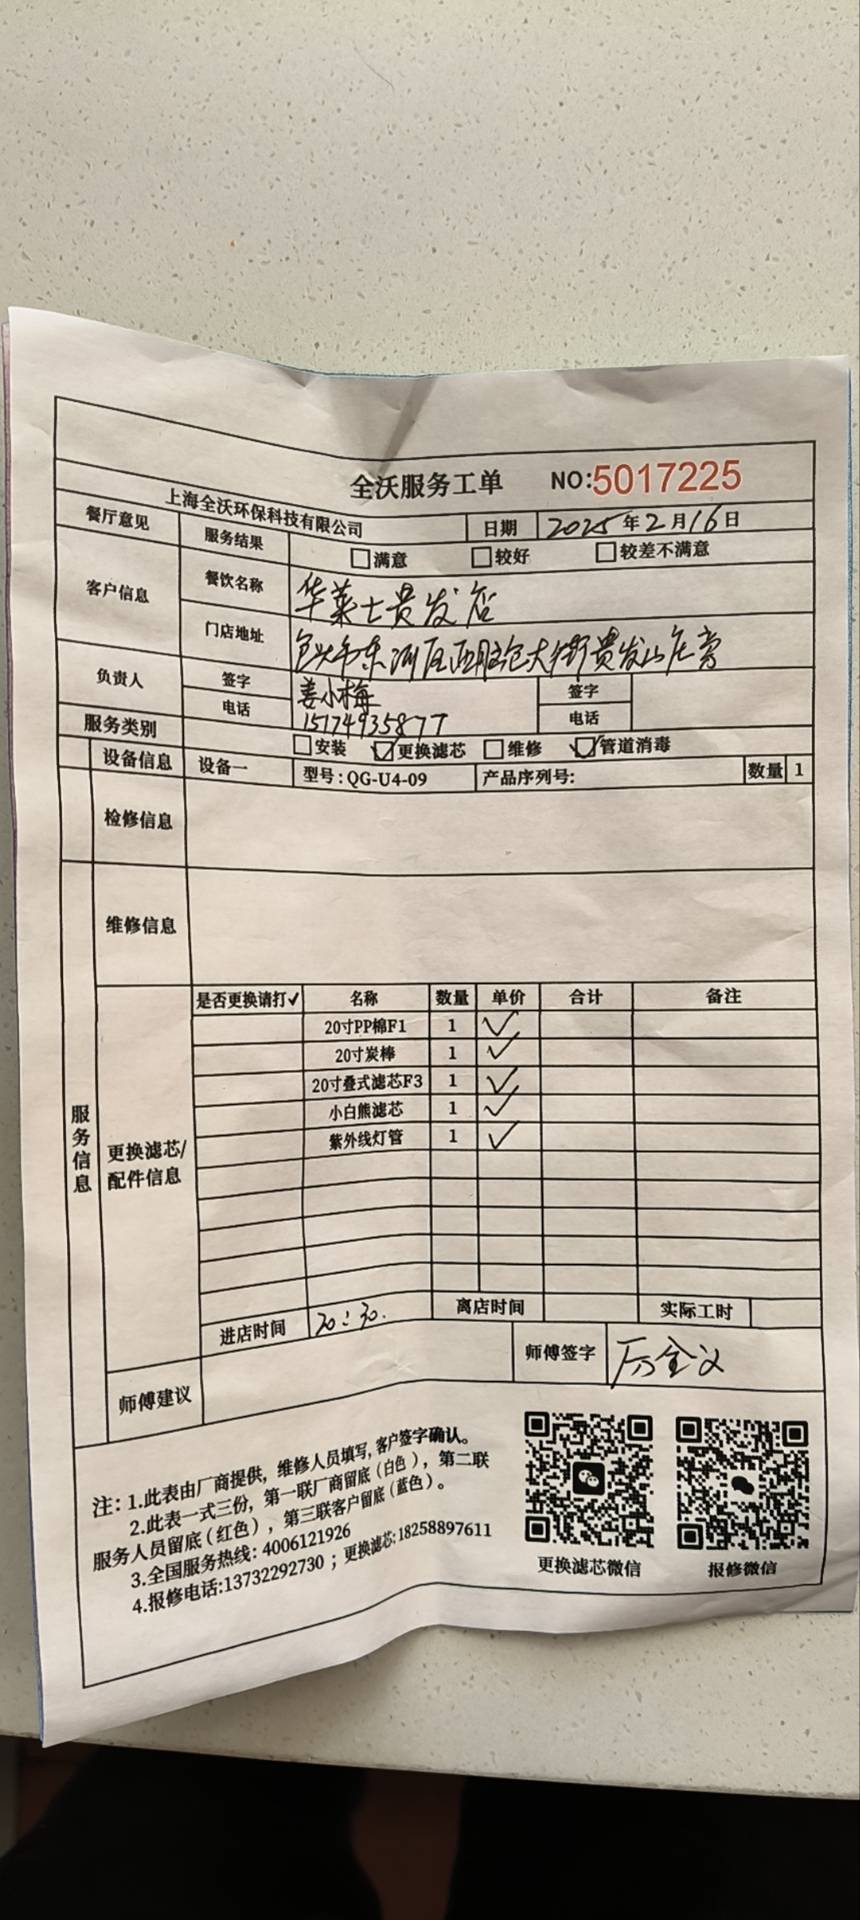 全沃服务工单 NO:5017225
上海全沃环保科技有限公司 日期 2025年2月16日
餐厅意见 服务结果 满意 较好 较差不满意
客户信息 餐饮名称 华莱士贵发店
门店地址 包头市东河区西脑包大街贵发山庄旁
负责人 签字 姜小梅 签字
电话 15174935877 电话
服务类别 安装 ✓更换滤芯 维修 ✓管道消毒
设备信息 设备一 型号:QG-U4-09 产品序列号: 数量 1
检修信息
维修信息
服务信息
更换滤芯/
配件信息
是否更换请打✓ 名称 数量 单价 合计 备注
20寸PP棉F1 1 ✓
20寸炭棒 1 ✓
20寸叠式滤芯F3 1 ✓
小白熊滤芯 1 ✓
紫外线灯管 1 ✓
进店时间 20:30. 离店时间 实际工时
师傅建议 师傅签字
注:1.此表由厂商提供,维修人员填写,客户签字确认。
2.此表一式三份,第一联厂商留底(白色),第二联
服务人员留底(红色),第三联客户留底(蓝色)。
3.全国服务热线:4006121926
4.报修电话:13732292730;更换滤芯:18258897611
更换滤芯微信 报修微信